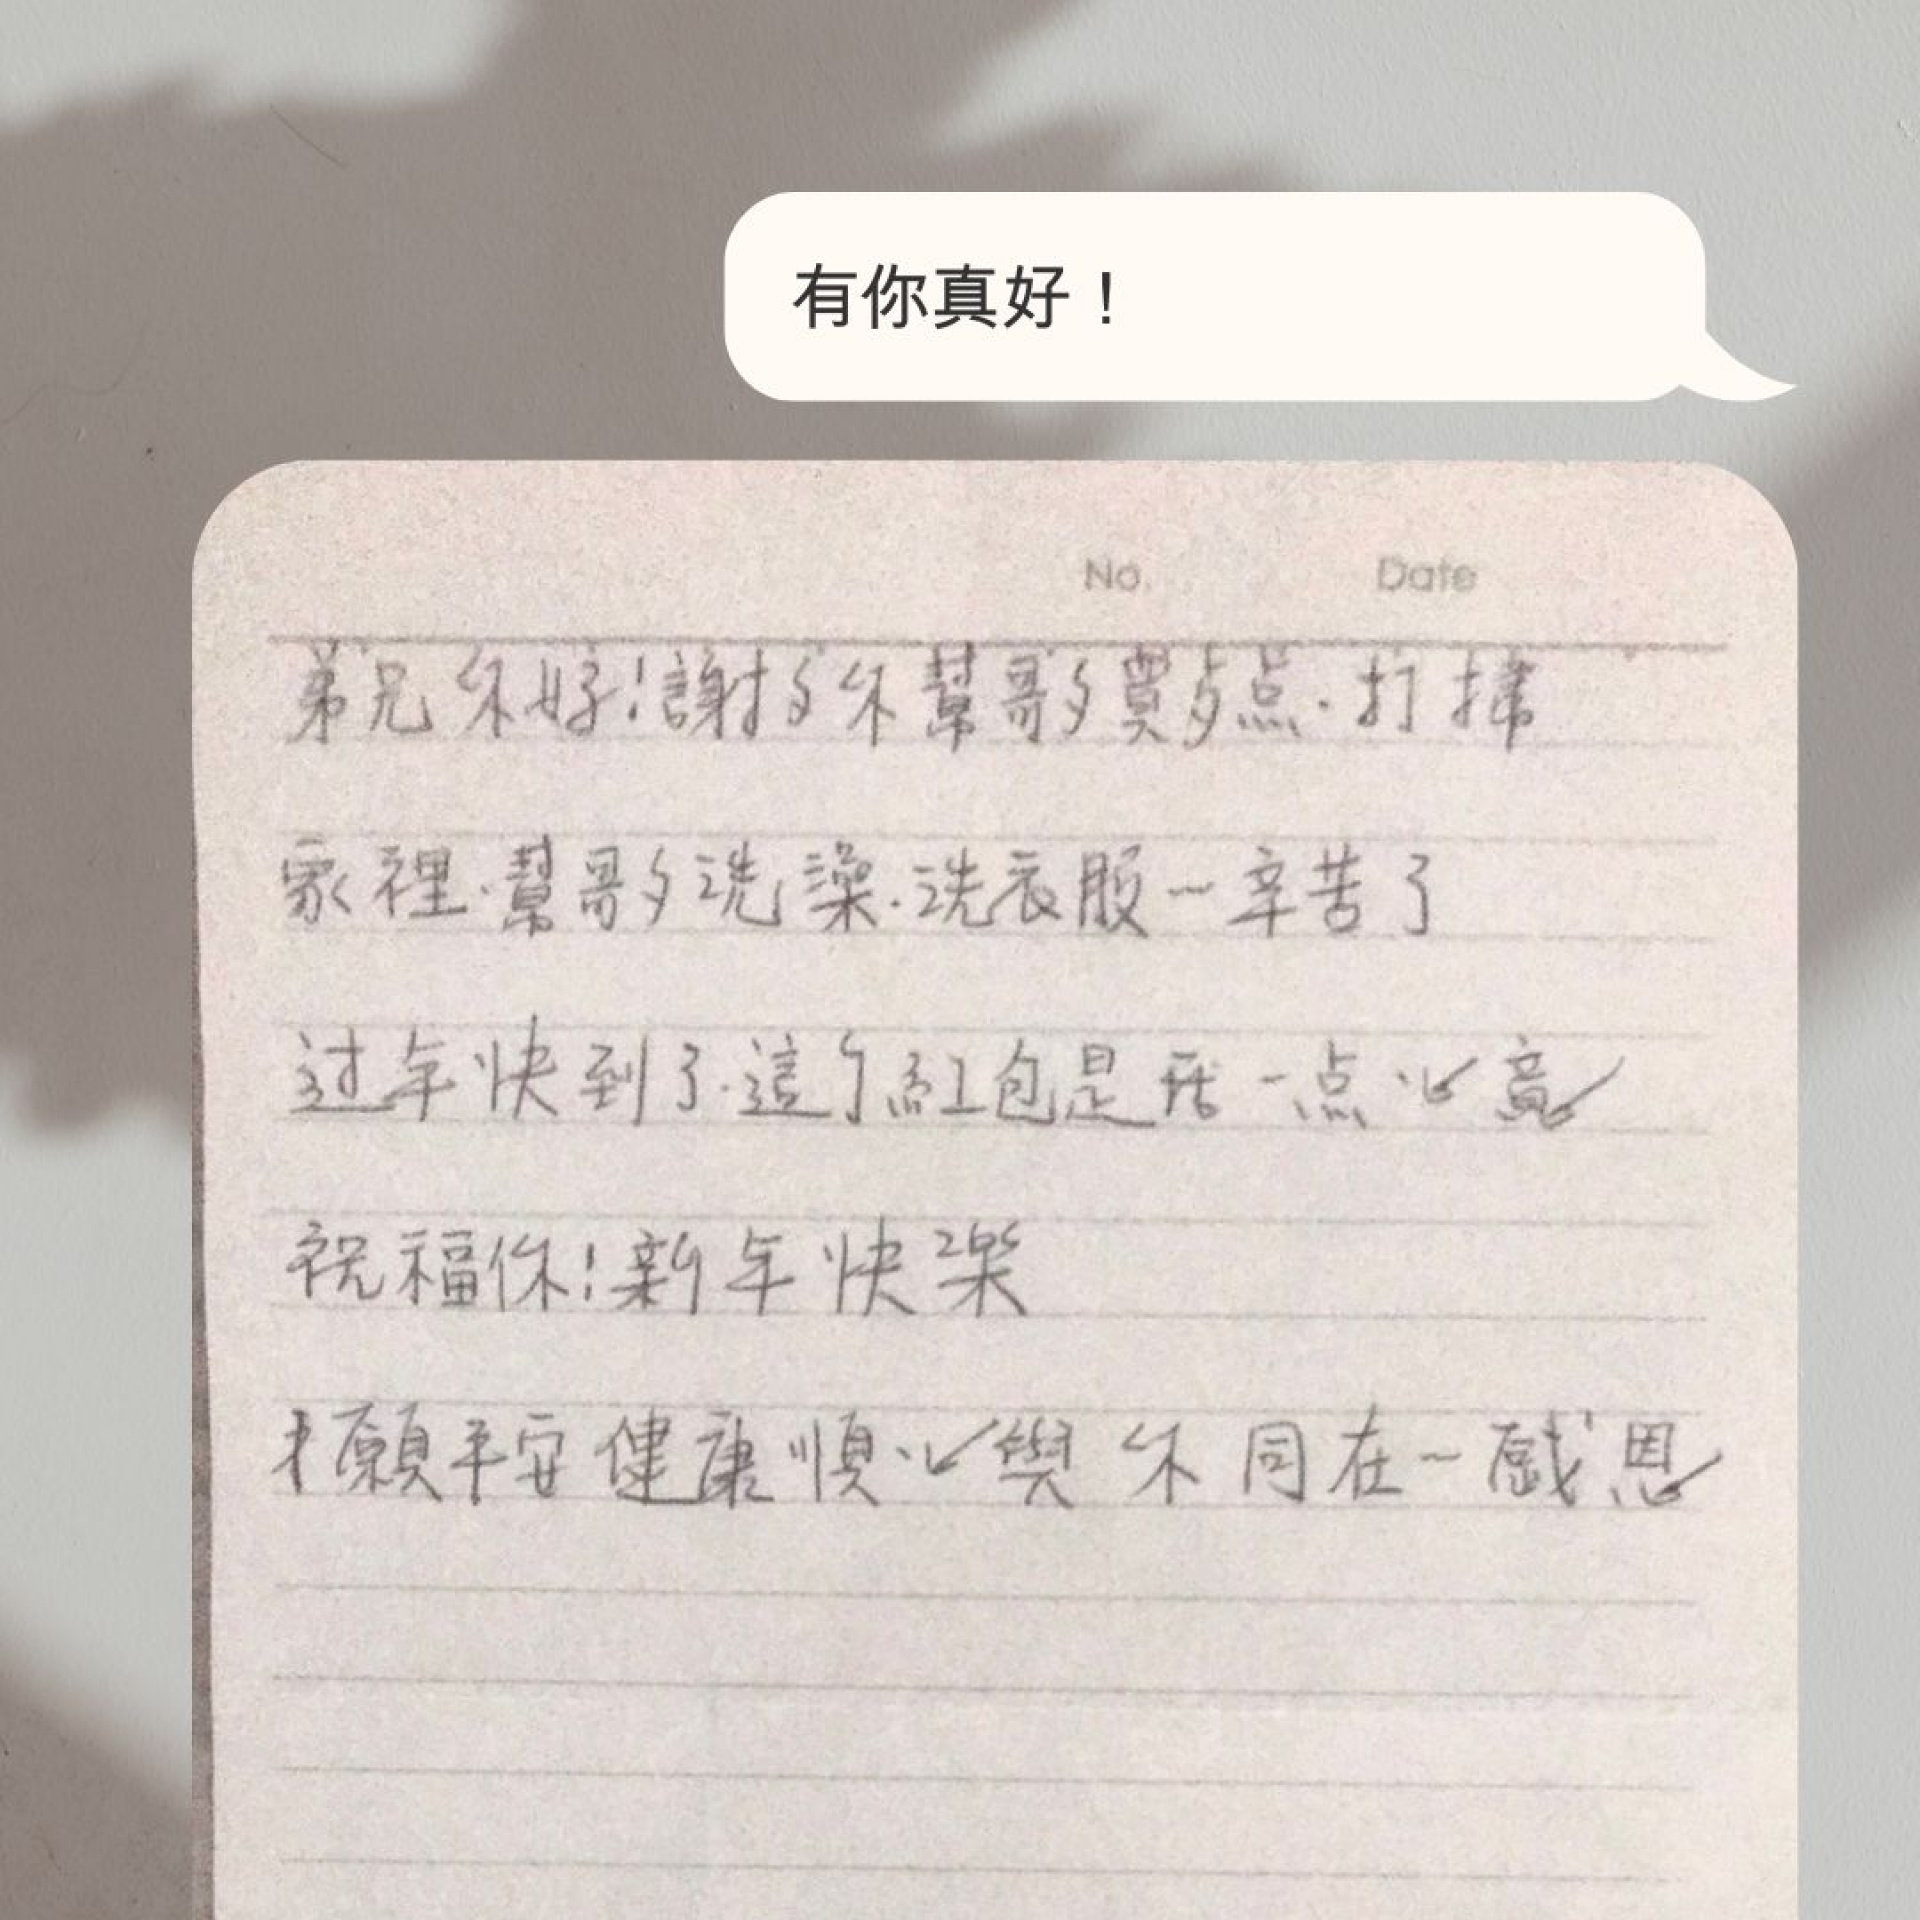 有你真好！
No. Date
弟兄你好!謝謝你幫哥哥買早点.打掃
家裡.幫哥哥洗澡.洗衣服~辛苦了
过年快到了.這个紅包是我一点心意
祝福你!新年快樂
願平安健康順心與你同在~感恩